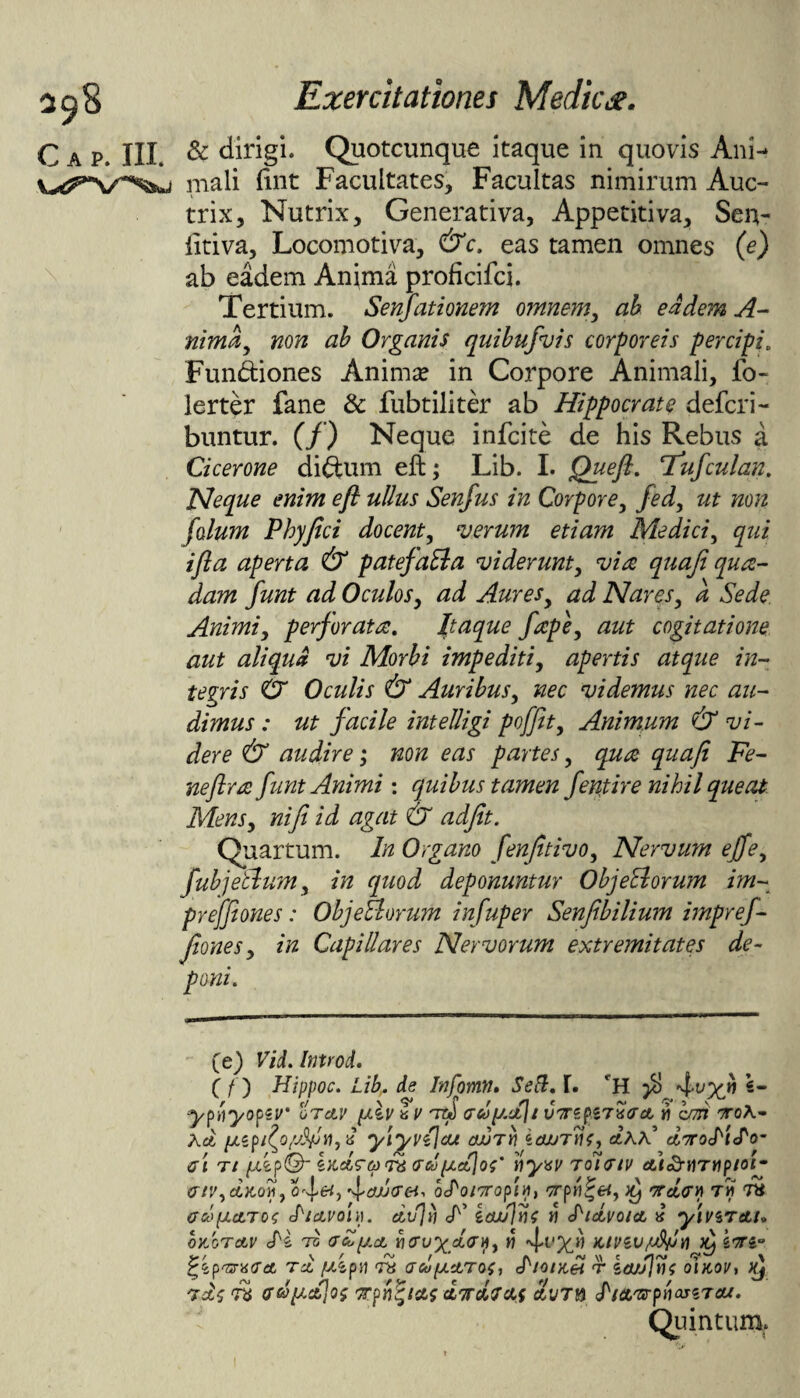 298 Exercitationes Medicæ.
CAP. III. & dirigi. Quotcunque itaque in quovis Ani-
mali ſint Facultates, Facultas nimirum Auc-
trix, Nutrix, Generativa, Appetitiva, Sen-
ſitiva, Locomotiva, &c. eas tamen omnes (e)
ab eâdem Animâ proficiſci.
Tertium. Senſationem omnem, ab eâdem A-
nimâ, non ab Organis quibuſvis corporeis percipi.
Functiones Animæ in Corpore Animali, ſo-
lertèr ſane & ſubtilitèr ab Hippocrate deſcri-
buntur. (f) Neque inſcitè de his Rebus à
Cicerone dictum eſt; Lib. I. Queſt. Tuſculan.
Neque enim eſt ullus Senſus in Corpore, ſed, ut non
ſolum Phyſici docent, verum etiam Medici, qui
iſta aperta & patefacta viderunt, viæ quaſi quæ-
dam ſunt ad Oculos, ad Aures, ad Nares, à Sede
Animi, perforatæ. Itaque ſæpè, aut cogitatione
aut aliquâ vi Morbi impediti, apertis atque in-
tegris & Oculis & Auribus, nec videmus nec au-
dimus: ut facile intelligi poſſit, Animum & vi-
dere & audire; non eas partes, quæ quaſi Fe-
neſtræ ſunt Animi: quibus tamen ſentire nihil queat
Mens, niſi id agat & adſit.
Quartum. In Organo ſenſitivo, Nervum eſſe,
ſubjectum, in quod deponuntur Objectorum im-
preſſiones: Objectorum inſuper Senſibilium impreſ-
ſiones, in Capillares Nervorum extremitates de-
poni.
(e) Vid. Introd.
(f) Hippoc. Lib. de Inſomn. Sect. I. Ἡ γὸ ψυχὴ ἐ-
γρηγορεν· ὅταν μὲν ἒν τῷ σώμαἶι ὑπερετȣσα ἢ ἐπὶ πολ-
λὰ μεριζομένη, ȣ γίγνεἶαι αὐτὴ ἑαυτῆς, ἀλλ' ἀποδίδο-
σί τι μέρ۞ ἑκάστῳ τȣ σώμαἶος· ἥγȣν τοῖσιν αἰσθητηρίοι-
σιν, ἀκοῇ, ὄψει, ψαύσει, ὁδοιπορίῃ, πρήξει, ϗ πάσῃ τῇ τȣ
σώματος διανοίῃ. αὐἶὴ δ' ἑαυἶῆς ἡ διάνοια ȣ γίνεται.
ὁκόταν δὲ τὸ σῶμα ἡσυχάσῃ, ἡ ψυχὴ κινευμένη ϗ ἐπε-
ξέρπȣσα τὰ μέρη τȣ σώματος, διοικεῖ τ ἑαυἶῆς οἶκον, ϗ
τὰς τȣ σώμαἶος πρήξιας ἁπάσας αὐτὴ διαπρήσσεται.
Quintum.